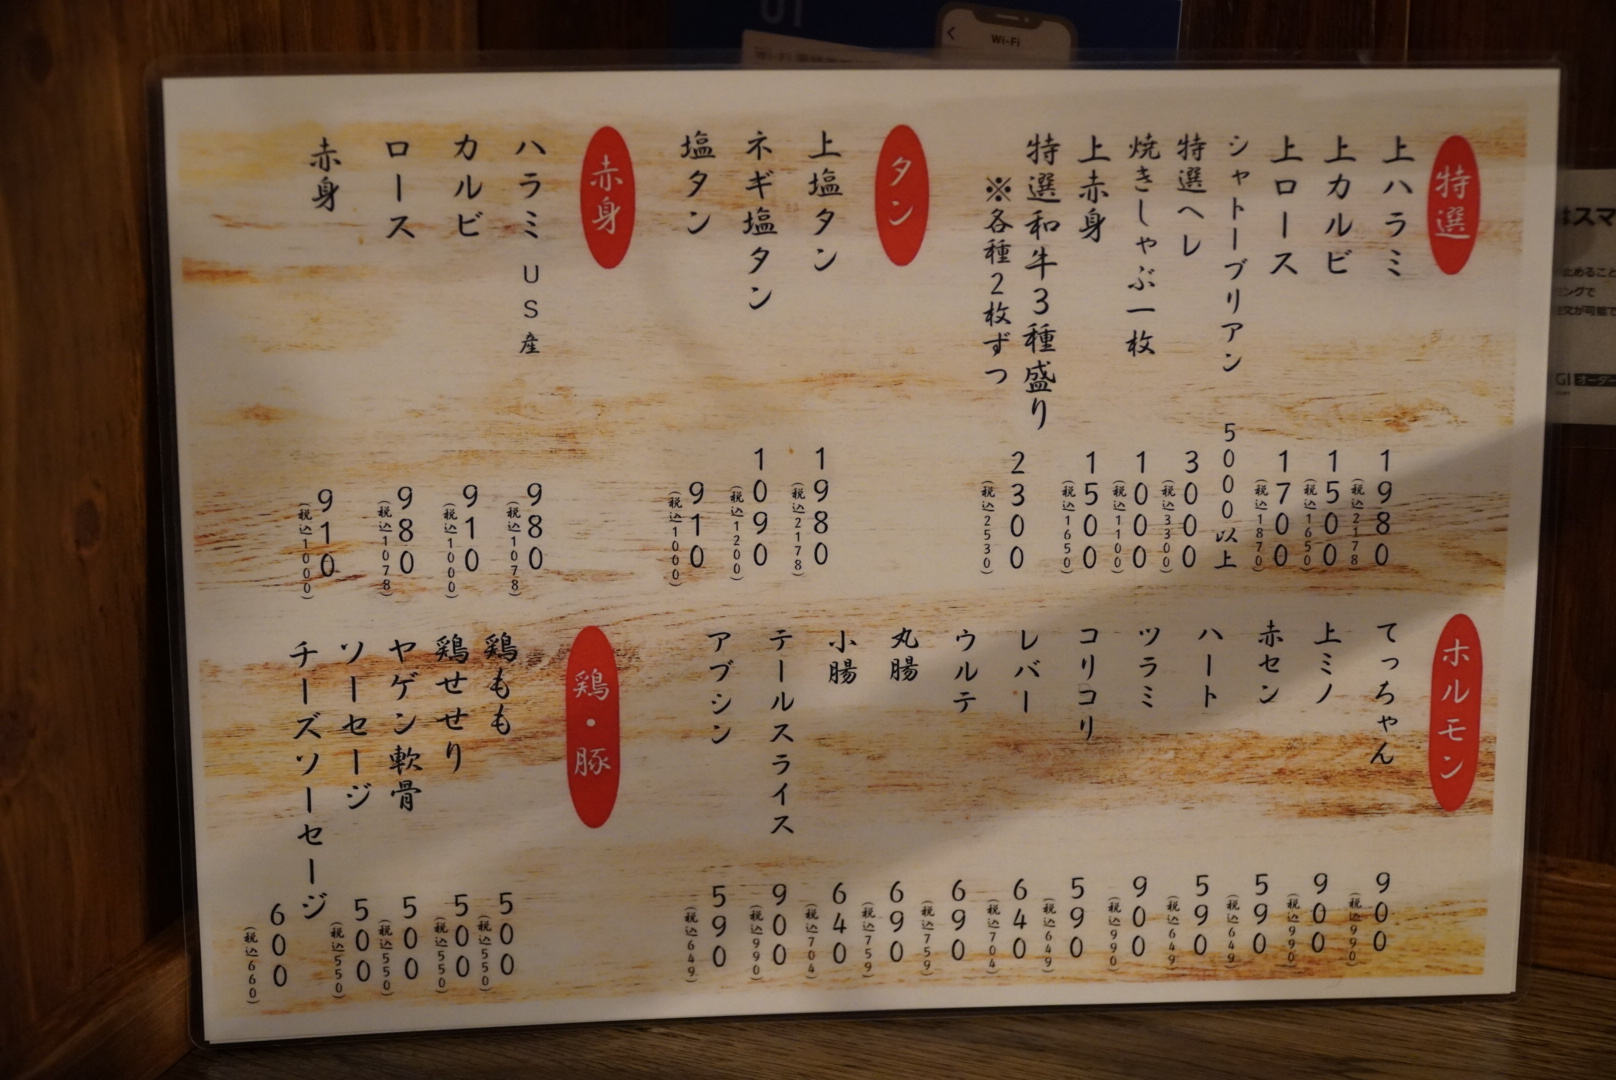 Wi-Fi
特選
上ハラミ 1980 (税込2178
上カルビ 1500 (税込1650)
上ロース 1700 (税込1870)
シャトーブリアン 5000以上
特選ヘレ 3000 (税込3300)
焼きしゃぶ一枚 1000 (税込1100)
上赤身 1500 (税込1650)
特選和牛3種盛り 2300 (税込2530)
※各種2枚ずつ
タン
上塩タン 1980 (税込2178)
ネギ塩タン 1090 (税込1200)
塩タン 910 (税込1000)
赤身
ハラミ US産 980 (税込1078)
カルビ 910 (税込1000)
ロース 980 (税込1078)
赤身 910 (税込1000)
ホルモン
てっちゃん 900 (税込990)
上ミノ 900 (税込990)
赤セン 590 (税込649)
ハート 590 (税込649)
ツラミ 900 (税込990)
コリコリ 590 (税込649)
レバー 640 (税込704)
ウルテ 690 (税込759)
丸腸 690 (税込759)
小腸 640 (税込704)
テールスライス 900 (税込990)
アブシン 590 (税込649)
鶏・豚
鶏もも 500 (税込550)
鶏せせり 500 (税込550)
ヤゲン軟骨 500 (税込550)
ソーセージ 500 (税込550)
チーズソーセージ 600 (税込660)
はスマ
止めること
ミングで
注文が可能で
GI オーダー